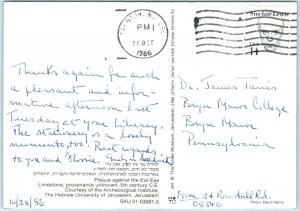 TRENTON, N.J. 086
PM
26 OCT
1986
Sinclair Lewis
USA 14
Thanks again for such
a pleasant and infor-
mative afternoon last
Tuesday at your Library.
The stationery is a lovely
memento, too! Best regards
to you and
10/25/86
Dr. James Tanis
Bryn Mawr College
Bryn Mawr
Pennsylvania
From 24 Randall Rd.
08540
Plaque against the Evil Eye
Limestone, provenance unknown, 5th century C.E.
Courtesy of the Archeological Institute,
The Hebrew University of Jerusalem, Jerusalem
SKU 01-03087-3
Photo: David Harris